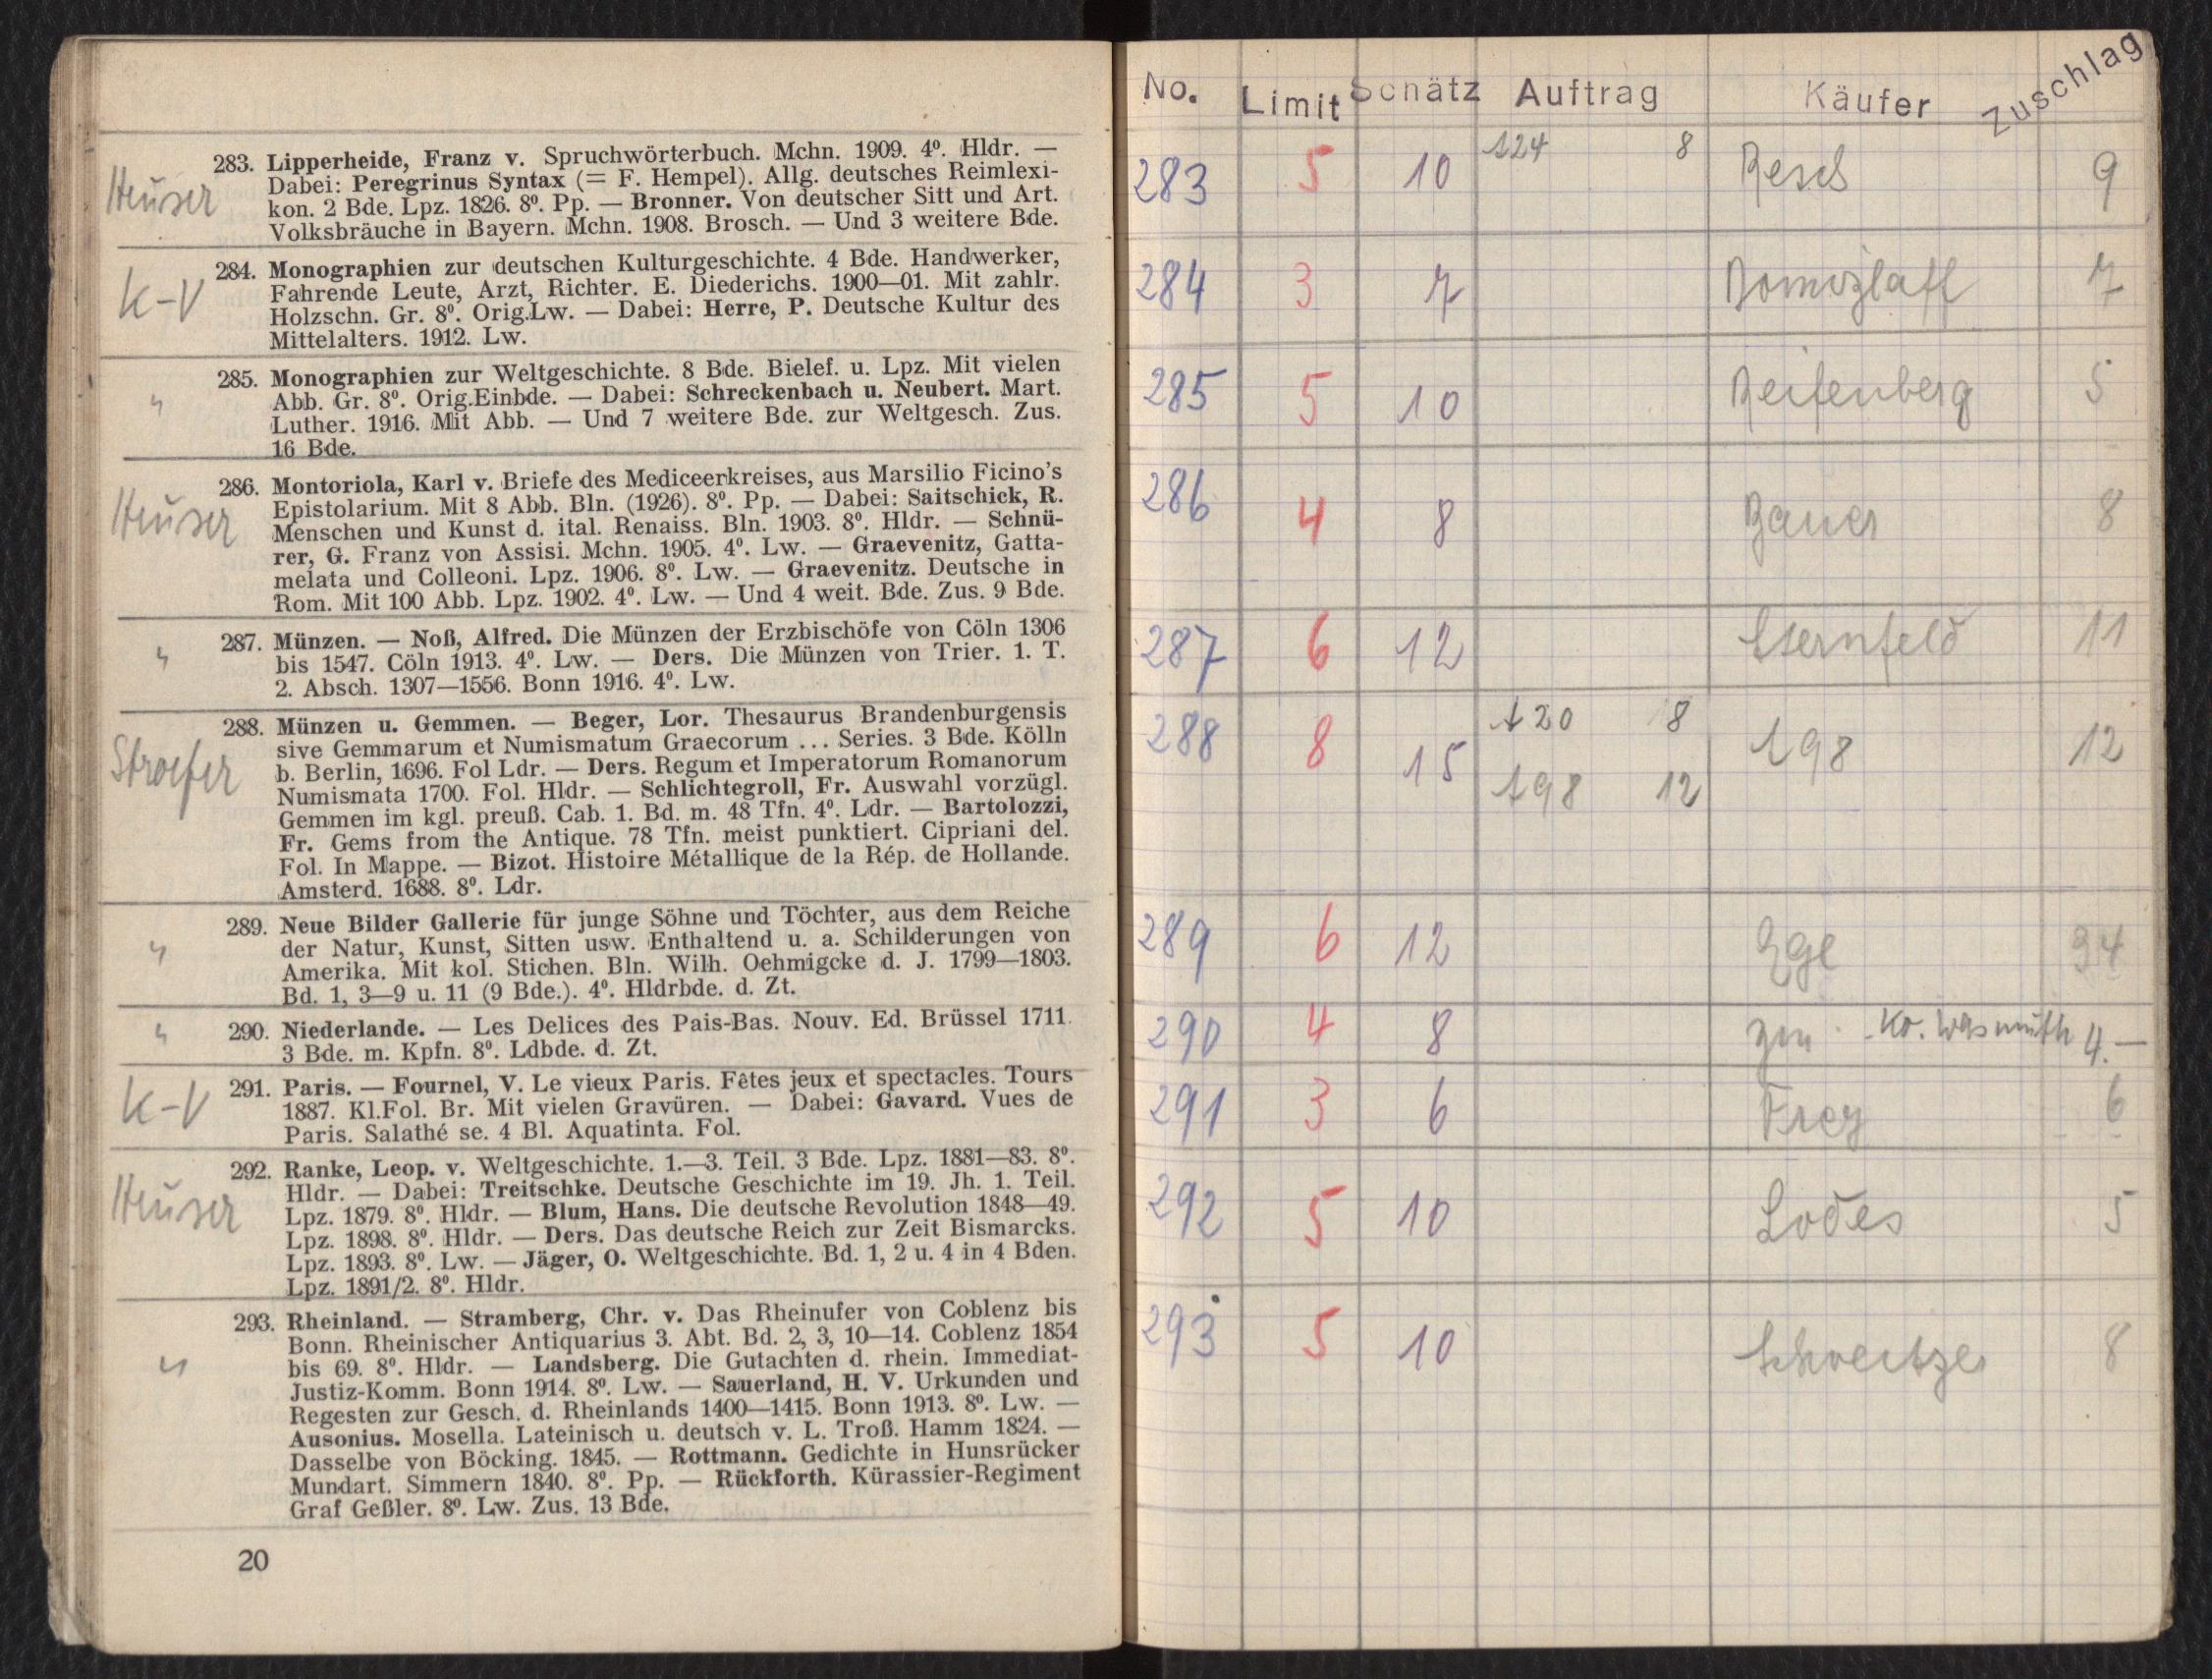 283. Lipperheide, Franz v. Spruchwörterbuch. Mchn. 1909. 4⁰. Hldr. —
Dabei: Peregrinus Syntax (= F. Hempel). Allg. deutsches Reimlexi-
kon. 2 Bde. Lpz. 1826. 8⁰. Pp. — Bronner. Von deutscher Sitt und Art.
Volksbräuche in Bayern. Mchn. 1908. Brosch. — Und 3 weitere Bde.
Heuser
284. Monographien zur deutschen Kulturgeschichte. 4 Bde. Handwerker,
Fahrende Leute, Arzt, Richter. E. Diederichs. 1900—01. Mit zahlr.
Holzschn. Gr. 8⁰. Orig.Lw. — Dabei: Herre, P. Deutsche Kultur des
Mittelalters. 1912. Lw.
K-V
285. Monographien zur Weltgeschichte. 8 Bde. Bielef. u. Lpz. Mit vielen
Abb. Gr. 8⁰. Orig.Einbde. — Dabei: Schreckenbach u. Neubert. Mart.
Luther. 1916. Mit Abb. — Und 7 weitere Bde. zur Weltgesch. Zus.
16 Bde.
"
286. Montoriola, Karl v. Briefe des Mediceerkreises, aus Marsilio Ficino's
Epistolarium. Mit 8 Abb. Bln. (1926). 8⁰. Pp. — Dabei: Saitschick, R.
Menschen und Kunst d. ital. Renaiss. Bln. 1903. 8⁰. Hldr. — Schnü-
rer, G. Franz von Assisi. Mchn. 1905. 4⁰. Lw. — Graevenitz, Gatta-
melata und Colleoni. Lpz. 1906. 8⁰. Lw. — Graevenitz. Deutsche in
Rom. Mit 100 Abb. Lpz. 1902. 4⁰. Lw. — Und 4 weit. Bde. Zus. 9 Bde.
Heuser
287. Münzen. — Noß, Alfred. Die Münzen der Erzbischöfe von Cöln 1306
bis 1547. Cöln 1913. 4⁰. Lw. — Ders. Die Münzen von Trier. 1. T.
2. Absch. 1307—1556. Bonn 1916. 4⁰. Lw.
"
288. Münzen u. Gemmen. — Beger, Lor. Thesaurus Brandenburgensis
sive Gemmarum et Numismatum Graecorum ... Series. 3 Bde. Kölln
b. Berlin, 1696. Fol Ldr. — Ders. Regum et Imperatorum Romanorum
Numismata 1700. Fol. Hldr. — Schlichtegroll, Fr. Auswahl vorzügl.
Gemmen im kgl. preuß. Cab. 1. Bd. m. 48 Tfn. 4⁰. Ldr. — Bartolozzi,
Fr. Gems from the Antique. 78 Tfn. meist punktiert. Cipriani del.
Fol. In Mappe. — Bizot. Histoire Métallique de la Rép. de Hollande.
Amsterd. 1688. 8⁰. Ldr.
Stroefer
289. Neue Bilder Gallerie für junge Söhne und Töchter, aus dem Reiche
der Natur, Kunst, Sitten usw. Enthaltend u. a. Schilderungen von
Amerika. Mit kol. Stichen. Bln. Wilh. Oehmigcke d. J. 1799—1803.
Bd. 1, 3—9 u. 11 (9 Bde.). 4⁰. Hldrbde. d. Zt.
"
290. Niederlande. — Les Delices des Pais-Bas. Nouv. Ed. Brüssel 1711.
3 Bde. m. Kpfn. 8⁰. Ldbde. d. Zt.
"
291. Paris. — Fournel, V. Le vieux Paris. Fêtes jeux et spectacles. Tours
1887. Kl.Fol. Br. Mit vielen Gravüren. — Dabei: Gavard. Vues de
Paris. Salathé se. 4 Bl. Aquatinta. Fol.
K-V
292. Ranke, Leop. v. Weltgeschichte. 1.—3. Teil. 3 Bde. Lpz. 1881—83. 8⁰.
Hldr. — Dabei: Treitschke. Deutsche Geschichte im 19. Jh. 1. Teil.
Lpz. 1879. 8⁰. Hldr. — Blum, Hans. Die deutsche Revolution 1848—49.
Lpz. 1898. 8⁰. Hldr. — Ders. Das deutsche Reich zur Zeit Bismarcks.
Lpz. 1893. 8⁰. Lw. — Jäger, O. Weltgeschichte. Bd. 1, 2 u. 4 in 4 Bden.
Lpz. 1891/2. 8⁰. Hldr.
Heuser
293. Rheinland. — Stramberg, Chr. v. Das Rheinufer von Coblenz bis
Bonn. Rheinischer Antiquarius 3. Abt. Bd. 2, 3, 10—14. Coblenz 1854
bis 69. 8⁰. Hldr. — Landsberg. Die Gutachten d. rhein. Immediat-
Justiz-Komm. Bonn 1914. 8⁰. Lw. — Sauerland, H. V. Urkunden und
Regesten zur Gesch. d. Rheinlands 1400—1415. Bonn 1913. 8⁰. Lw. —
Ausonius. Mosella. Lateinisch u. deutsch v. L. Troß. Hamm 1824. —
Dasselbe von Böcking. 1845. — Rottmann. Gedichte in Hunsrücker
Mundart. Simmern 1840. 8⁰. Pp. — Rückforth. Kürassier-Regiment
Graf Geßler. 8⁰. Lw. Zus. 13 Bde.
"
20
No. Limit Schätz Auftrag Käufer Zuschlag
283 5 10 124 8 Resch 9
284 3 7 7
285 5 10 Reifenberg 5
286 4 8 Bauer 8
287 6 12 Sternfeld 11
288 8 15 120 8 198 12
198 12
289 6 12 Ege 34
290 4 8 Wasmuth 4.—
291 3 6 Frey 6
292 5 10 Lodes 5
293 5 10 Schweitzer 8